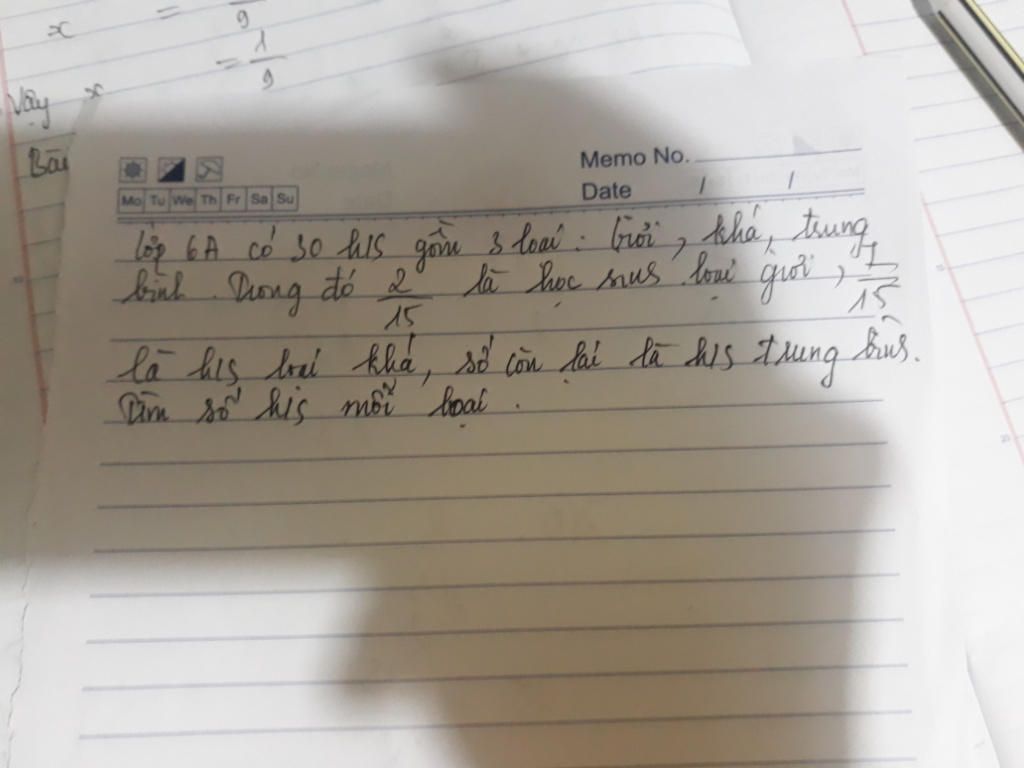 x = 9
= 1/9
Vậy x
Bài
Memo No.
Date / /
Mo Tu We Th Fr Sa Su
lớp 6A có 30 h/s gồm 3 loại : Giỏi, khá, trung
bình. Trong đó 2/15 là học sinh loại giỏi, 7/15
là h/s loại khá, số còn lại là h/s trung bình.
Tìm số h/s mỗi loại.